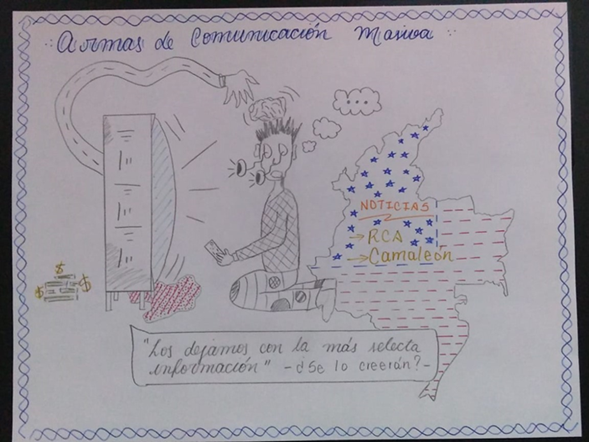 Armas de Comunicación Masiva
NOTICIAS
→ RCA
→ Camaleón
$
$ $
"Los dejamos con la más selecta
información" - ¿Se lo creerán? -